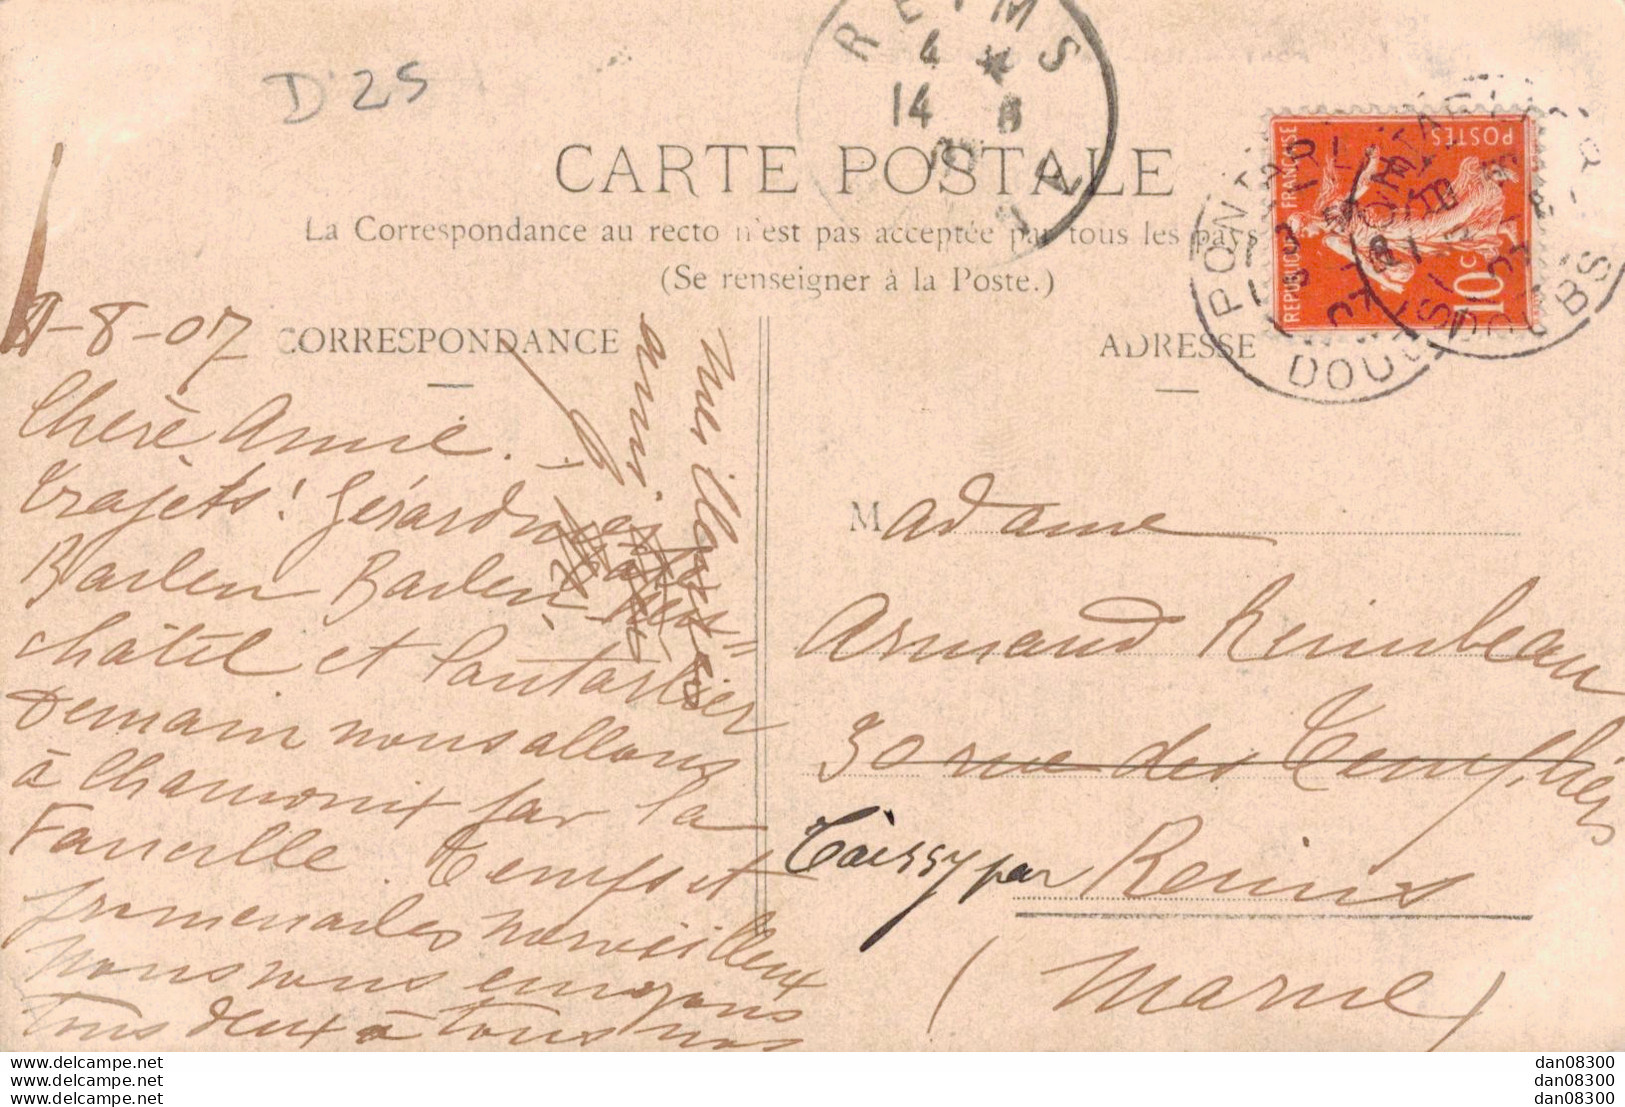 D'25
REIMS
4 *
14 8
CARTE POSTALE
La Correspondance au recto n'est pas acceptée par tous les pays
(Se renseigner à la Poste.)
REPUBLIQUE FRANÇAISE
POSTES
10 C
PONTARLIER
DOUBS
CORRESPONDANCE
ADRESSE
11-8-07
Chère Amie.
Trajets! Gérardmer
Baden Baden,
châtel et Pontarlier
Demain nous allons
à Chamonix par la
Faucille Temps et
promenades merveilleux
Nous vous envoyons
tous deux à tous nos
meilleures
amis
Madame
Armand Rimbeau
30 rue des Templiers
Taissy par Reims
(Marne)
www.delcampe.net
www.delcampe.net
www.delcampe.net
dan08300
dan08300
dan08300